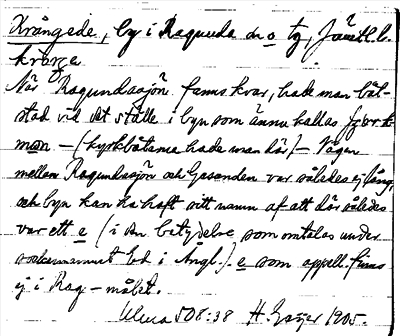 Krångede, by i Ragunda sn o tg, Jämtl. l.
När Ragundasjön fanns kvar, hade man båt-
stad vid det ställe i byn som ännu kallas
man – (kyrkbåtarna hade man där) – Vägen
mellan Ragundasjön och Gesunden var således ej lång,
och byn kan ha haft sitt namn af att där således
var ett e (i den betydelse som omtalas under
sockennamnet Ed i Ångl.). e som appell. finns
ej i Rag – målet.
Ulma 508:38 H. Geijer 1905.